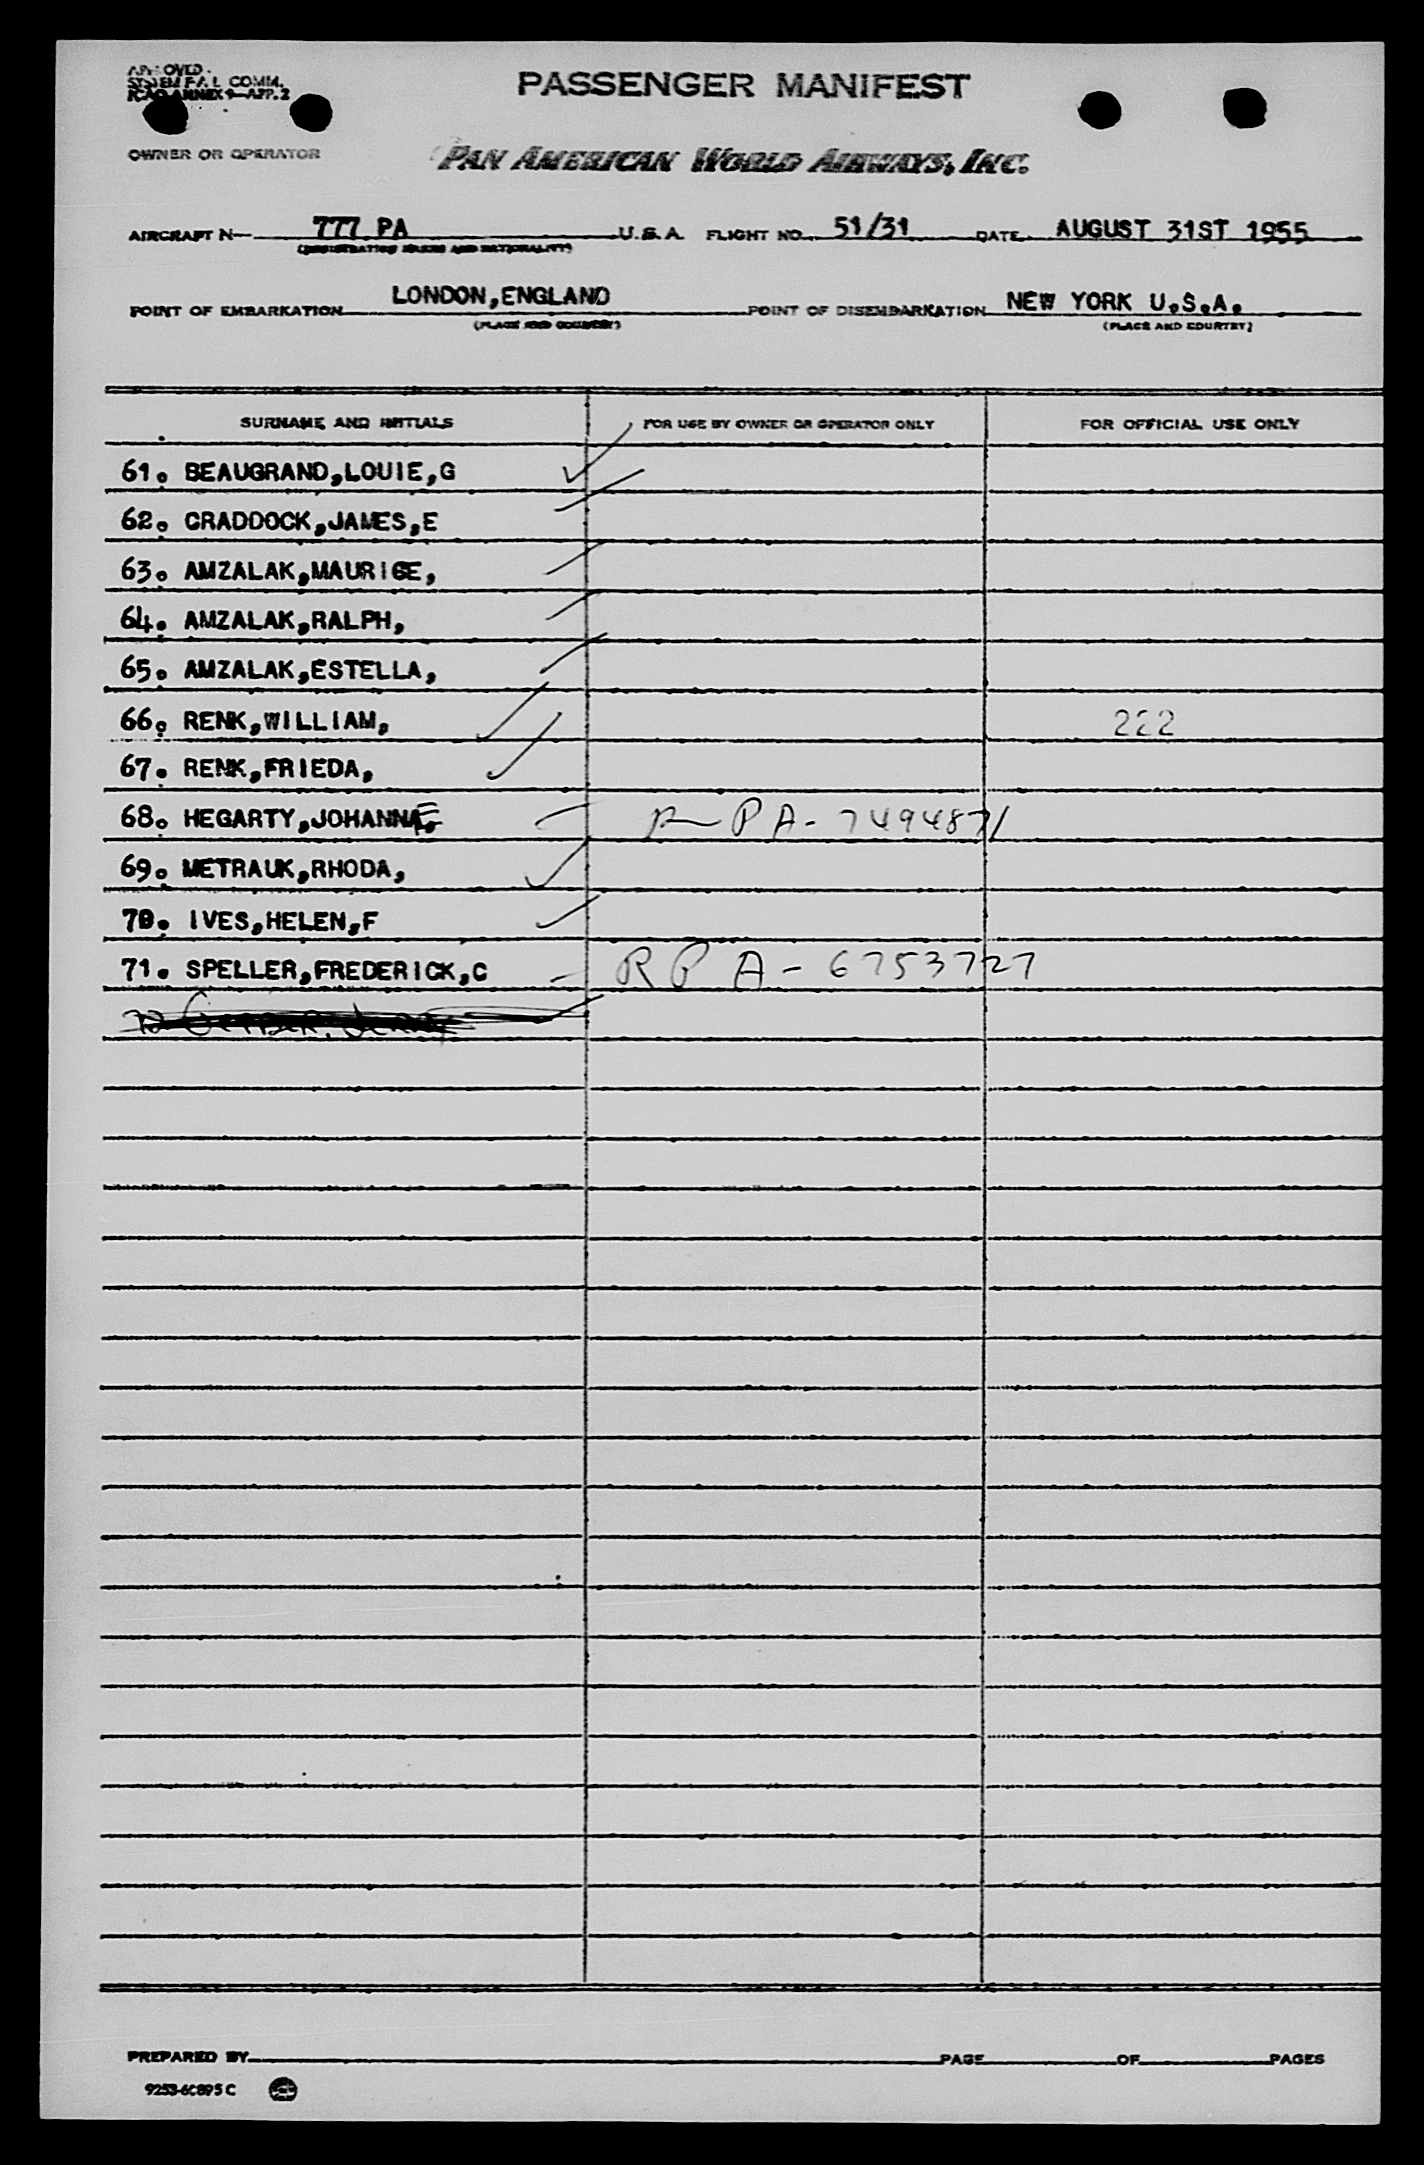 APPROVED
SYSTEM F.A.L. COMM.
ICAO ANNEX 9—APP. 2
PASSENGER MANIFEST
OWNER OR OPERATOR PAN AMERICAN WORLD AIRWAYS, INC.
AIRCRAFT N— 777 PA U.S.A. FLIGHT NO. 51/31 DATE AUGUST 31ST 1955
(REGISTRATION MARKS AND NATIONALITY)
POINT OF EMBARKATION LONDON,ENGLAND POINT OF DISEMBARKATION NEW YORK U.S.A.
(PLACE AND COUNTRY) (PLACE AND COUNTRY)
SURNAME AND INITIALS FOR USE BY OWNER OR OPERATOR ONLY FOR OFFICIAL USE ONLY
61. BEAUGRAND,LOUIE,G
62. CRADDOCK,JAMES,E
63. AMZALAK,MAURICE,
64. AMZALAK,RALPH,
65. AMZALAK,ESTELLA,
66. RENK,WILLIAM, 222
67. RENK,FRIEDA,
68. HEGARTY,JOHANNAE, PA-7494871
69. METRAUX,RHODA,
70. IVES,HELEN,F
71. SPELLER,FREDERICK,C RPA-6753727
72
PREPARED BY PAGE OF PAGES
9253-6C895 C